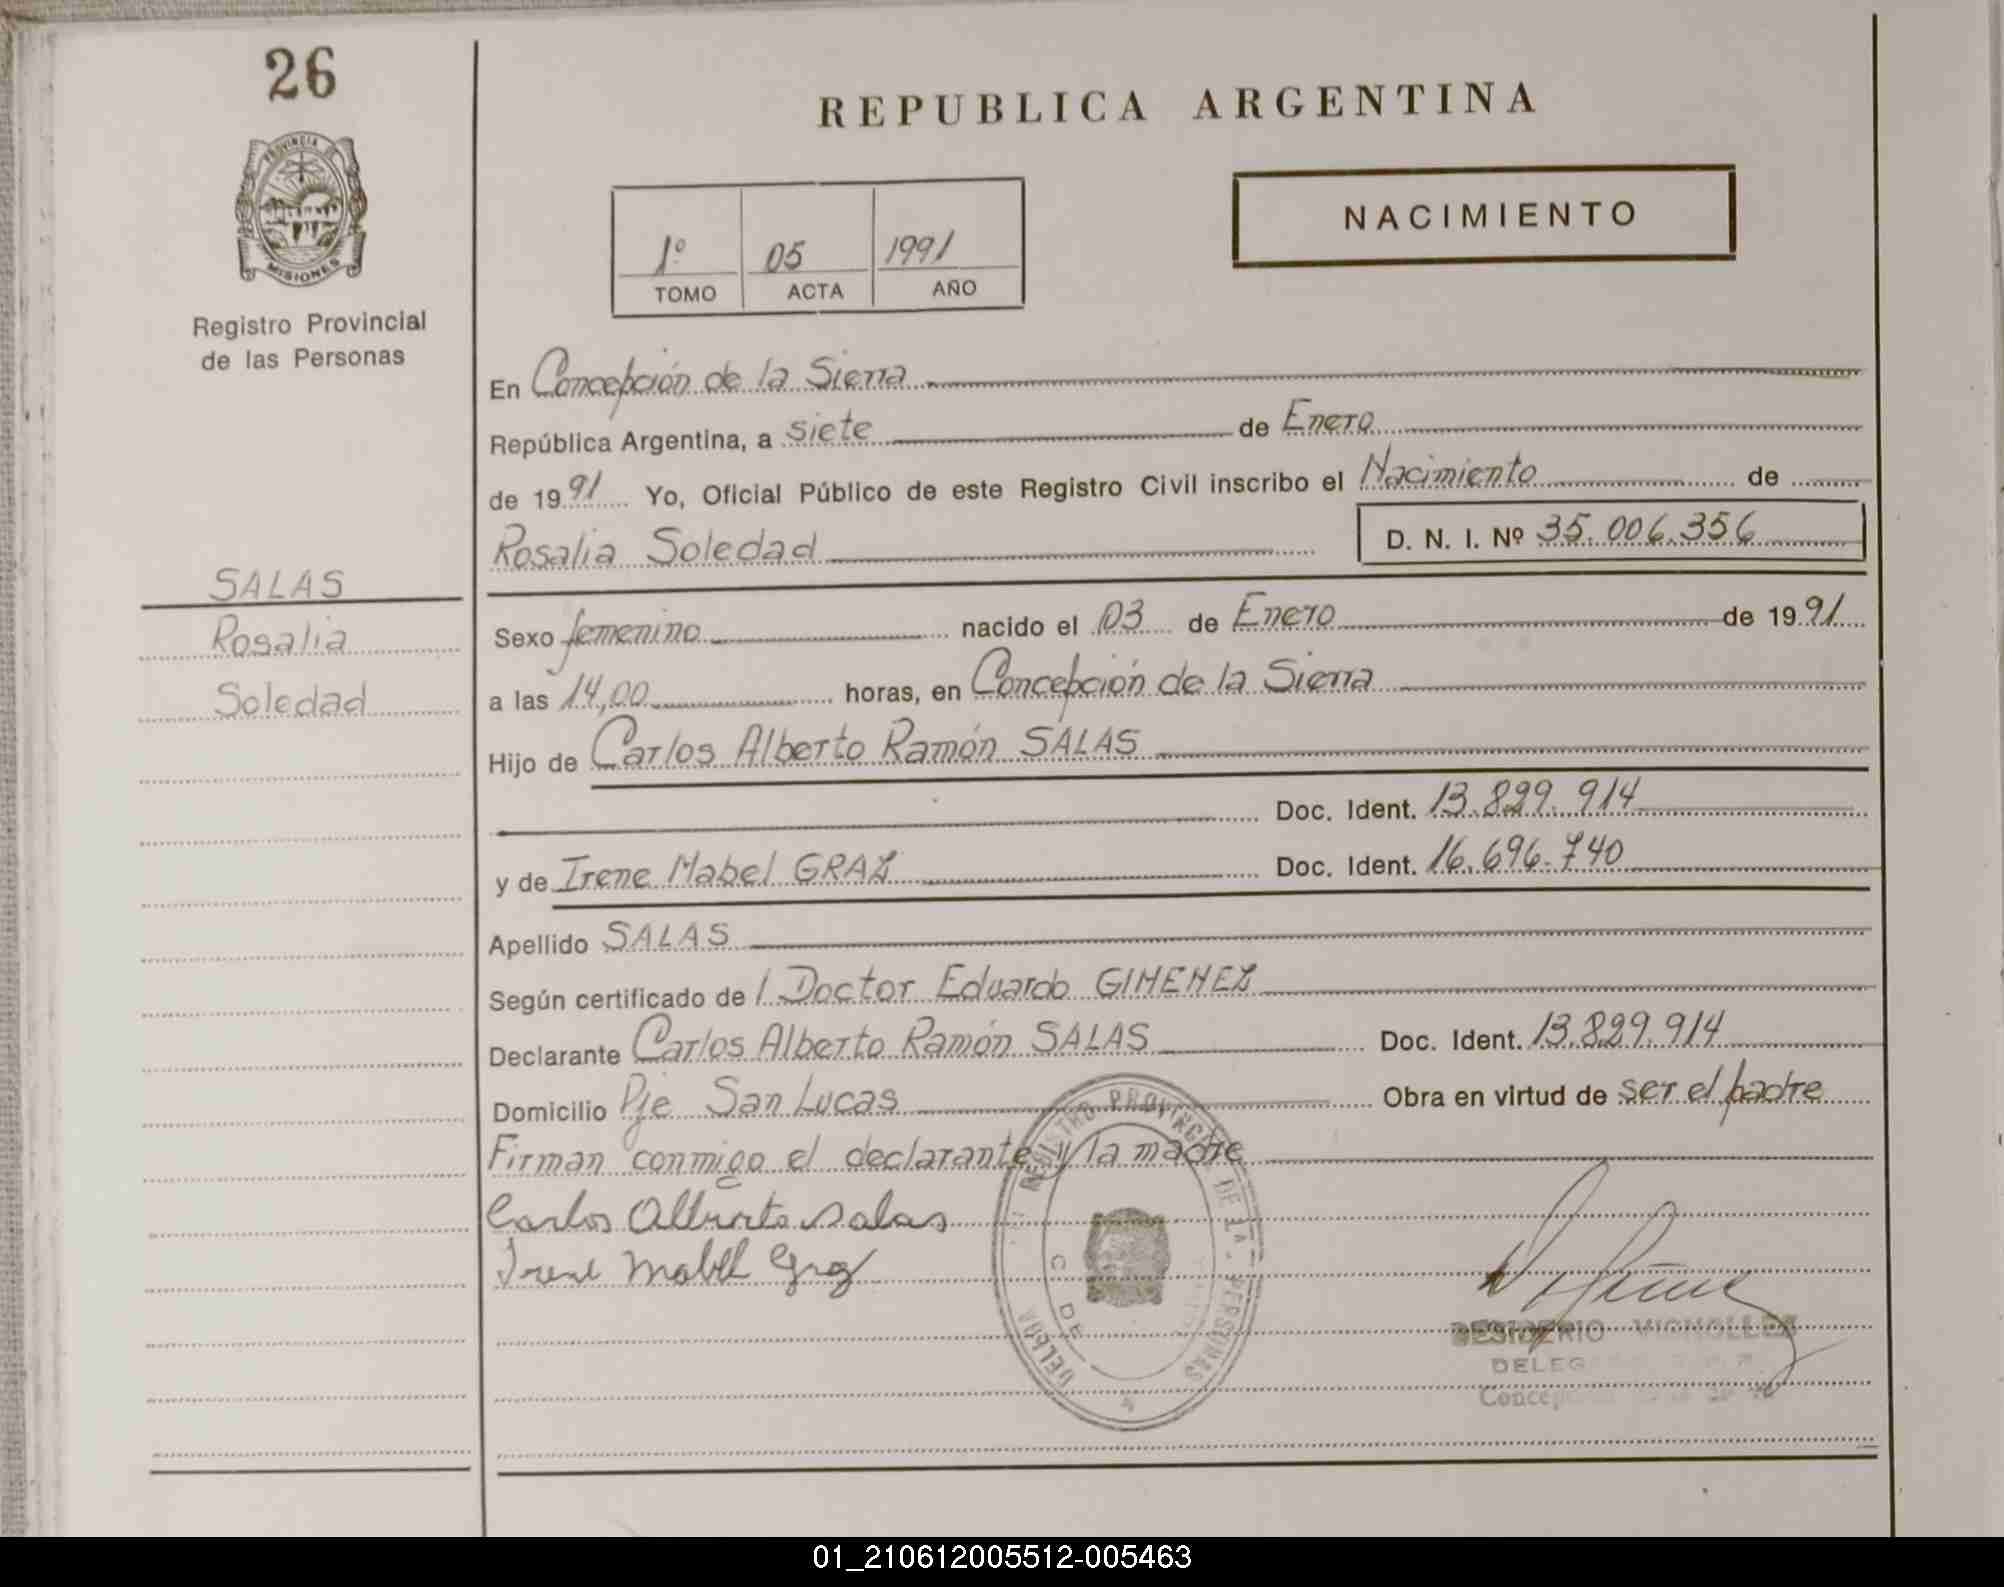 26
PROVINCIA DE
MISIONES
Registro Provincial
de las Personas
SALAS
Rosalia
Soledad
REPUBLICA ARGENTINA
NACIMIENTO
1º 05 1991
TOMO ACTA AÑO
En Concepción de la Sierra
República Argentina, a siete de Enero
de 1991 Yo, Oficial Público de este Registro Civil inscribo el Nacimiento de
Rosalia Soledad D. N. I. Nº 35.006.356
Sexo femenino nacido el 03 de Enero de 1991
a las 14,00 horas, en Concepción de la Sierra
Hijo de Carlos Alberto Ramón SALAS
Doc. Ident. 13.829.914
y de Irene Mabel GRAZ Doc. Ident. 16.696.740
Apellido SALAS
Según certificado de l Doctor Eduardo GIMENEZ
Declarante Carlos Alberto Ramón SALAS Doc. Ident. 13.829.914
Domicilio Pje San Lucas Obra en virtud de ser el padre
Firman conmigo el declarante y la madre
Carlos Alberto Salas
Irene Mabel Graz
REGISTRO PROVINCIAL DE LAS PERSONAS
DESIDERIO VIGNOLLES
01_210612005512-005463